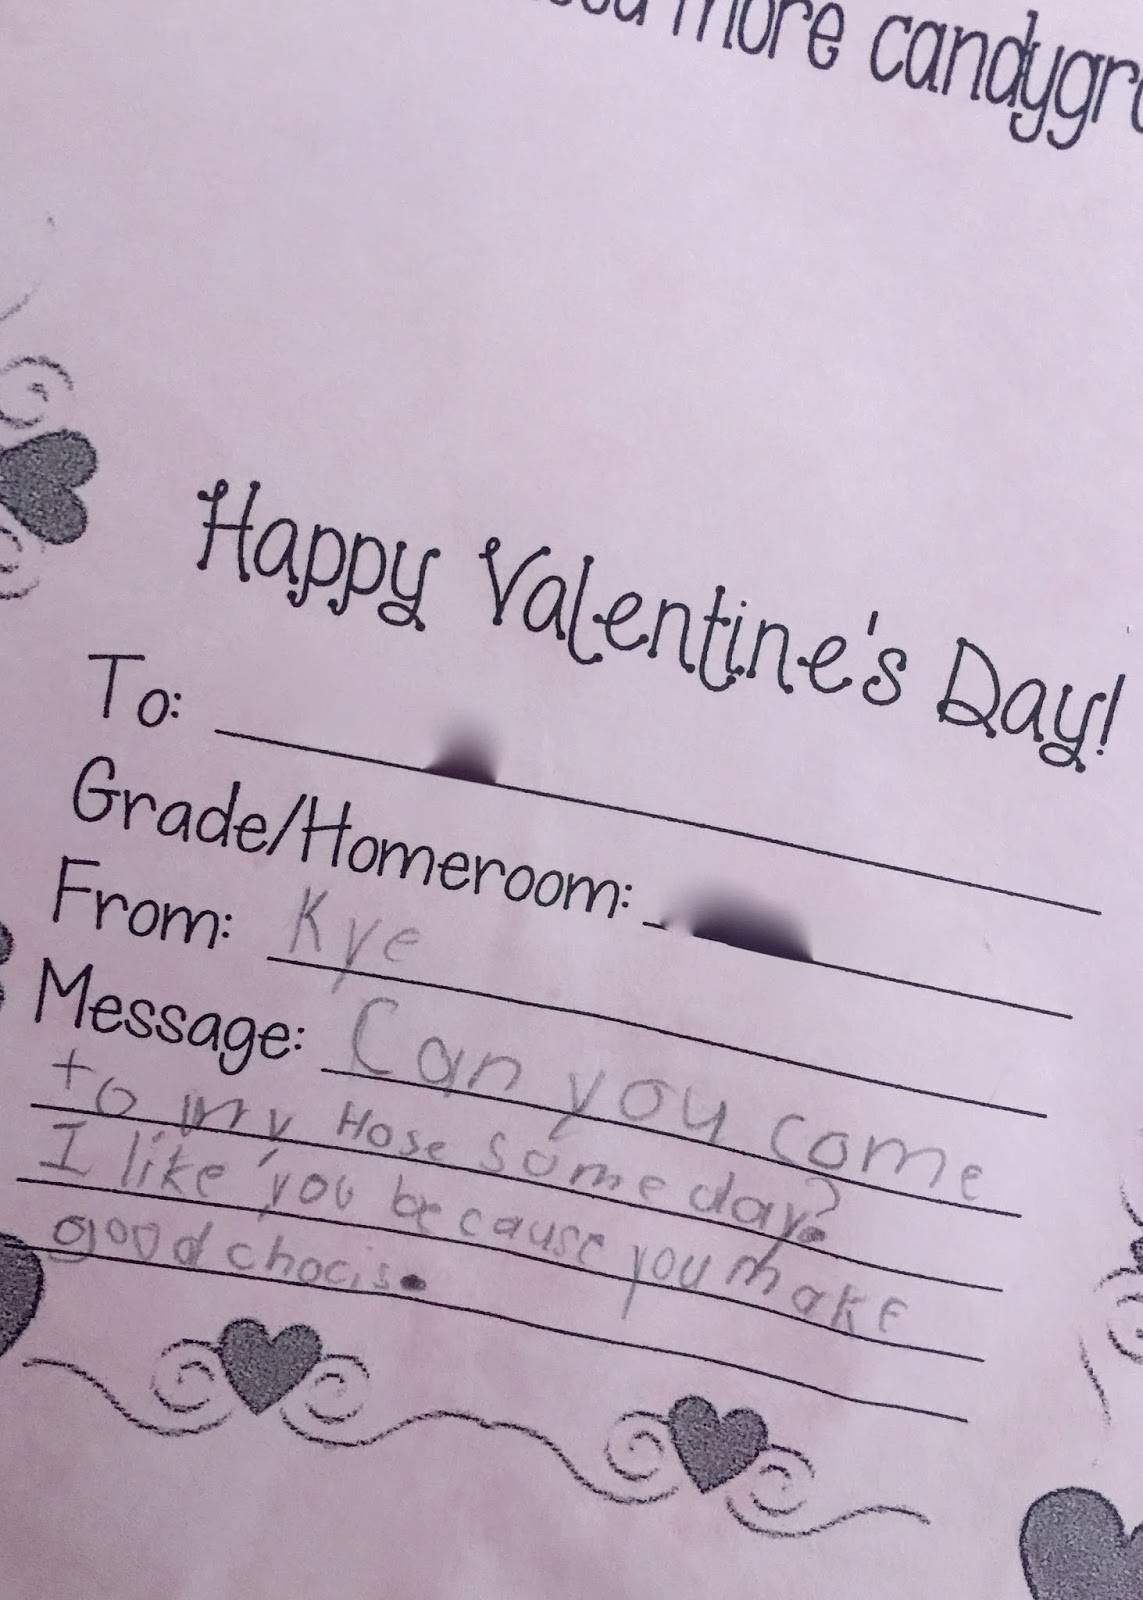 more candygr
Happy Valentine's Day!
To:
Grade/Homeroom:
From: Kye
Message: Can you come
to my Hose some day?
I like you because you make
good chocis.